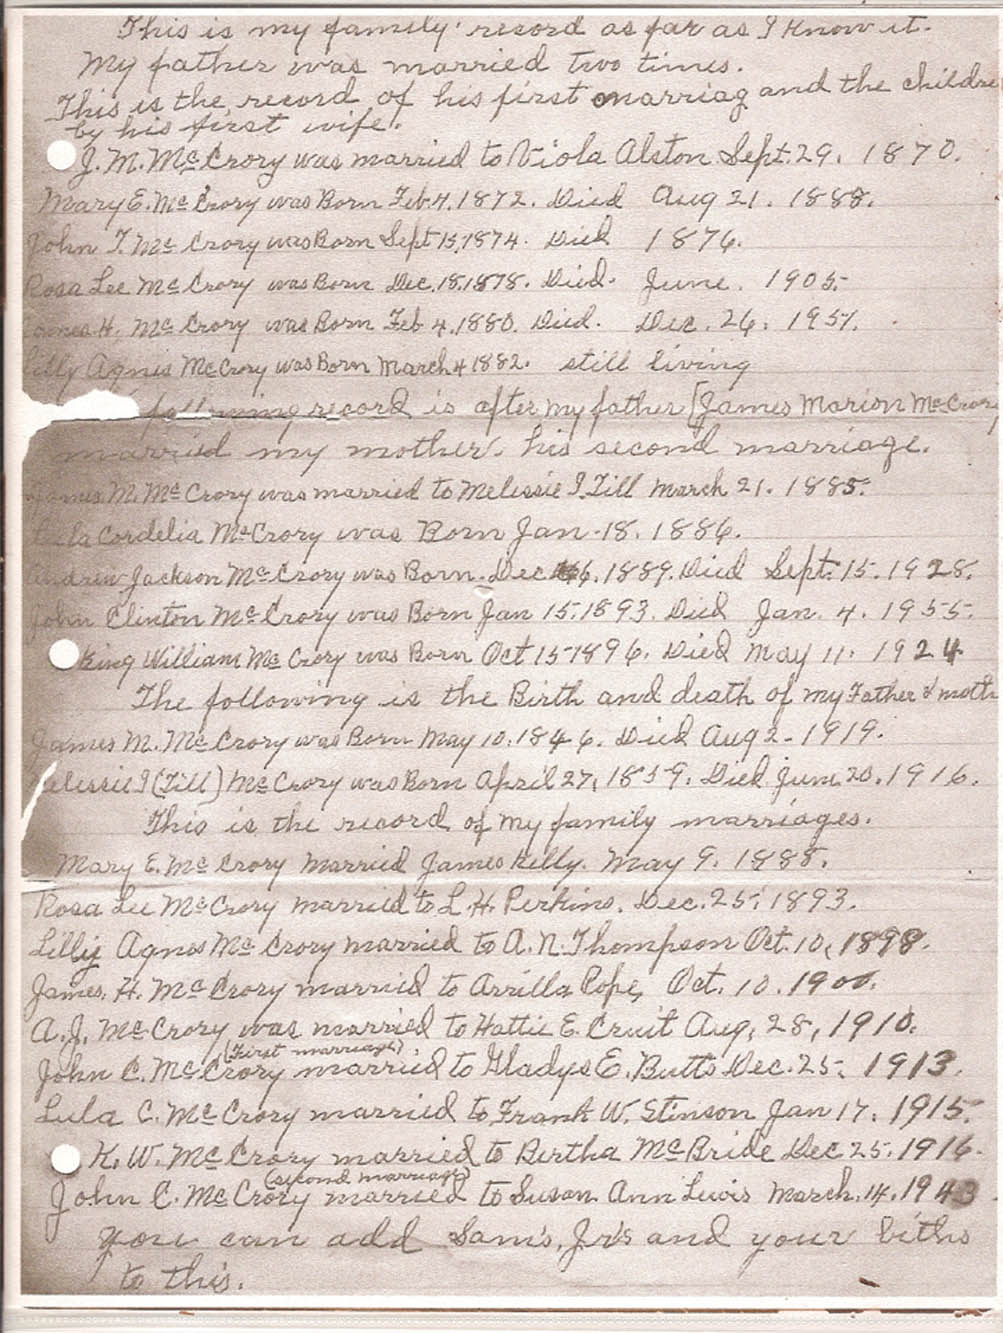 This is my family record as far as I know it.
My father was married two times.
This is the record of his first marriag and the childre
by his first wife.
J. M. McCrory was married to Viola Alston Sept. 29. 1870.
Mary E. McCrory was Born Feb 4. 1872. Died Aug 21. 1888.
John T. McCrory was Born Sept 15, 1874. Died 1876.
Rosa Lee McCrory was Born Dec. 18. 1878. Died. June. 1905.
James H. McCrory was Born Feb 4. 1880. Died. Dec. 26. 1951.
Lilly Agnis McCrory was Born March 4 1882. still living
following record is after my father [James Marion McCrory
married my mother. his second marriage.
James M. McCrory was married to Melissie I. Till March 21. 1885.
Cordelia McCrory was Born Jan. 18. 1886.
Andrew Jackson McCrory was Born. Dec 6. 1889. Died Sept. 15. 1928.
John Clinton McCrory was Born Jan 15. 1893. Died Jan. 4. 1955.
King William McCrory was Born Oct 15 1896. Died May 11. 1924
The following is the Birth and death of my Father & moth
James M. McCrory was Born May 10. 1846. Died Aug 2 - 1919.
elissie I (Till) McCrory was Born April 27, 1859. Died June 20. 1916.
This is the record of my family marriages.
Mary E. McCrory Married James Kelly. May 9. 1888.
Rosa Lee McCrory married to L. H. Perkins. Dec. 25, 1893.
Lilly Agnes McCrory married to A. N. Thompson Oct. 10, 1898.
James. H. McCrory married to Arrilla Pope, Oct. 10. 1900.
A. J. McCrory was married to Hattie E. Cruit Aug, 28, 1910.
(First marriage)
John C. McCrory married to Gladys E. Butts Dec. 25. 1913.
Lula C. McCrory married to Frank W. Stinson Jan 17. 1915.
K. W. McCrory married to Bertha McBride Dec 25. 1916.
(second marriage)
John C. McCrory married to Susan Ann Lewis March. 14. 1943.
you can add Sam's, Jr's and your biths
to this.